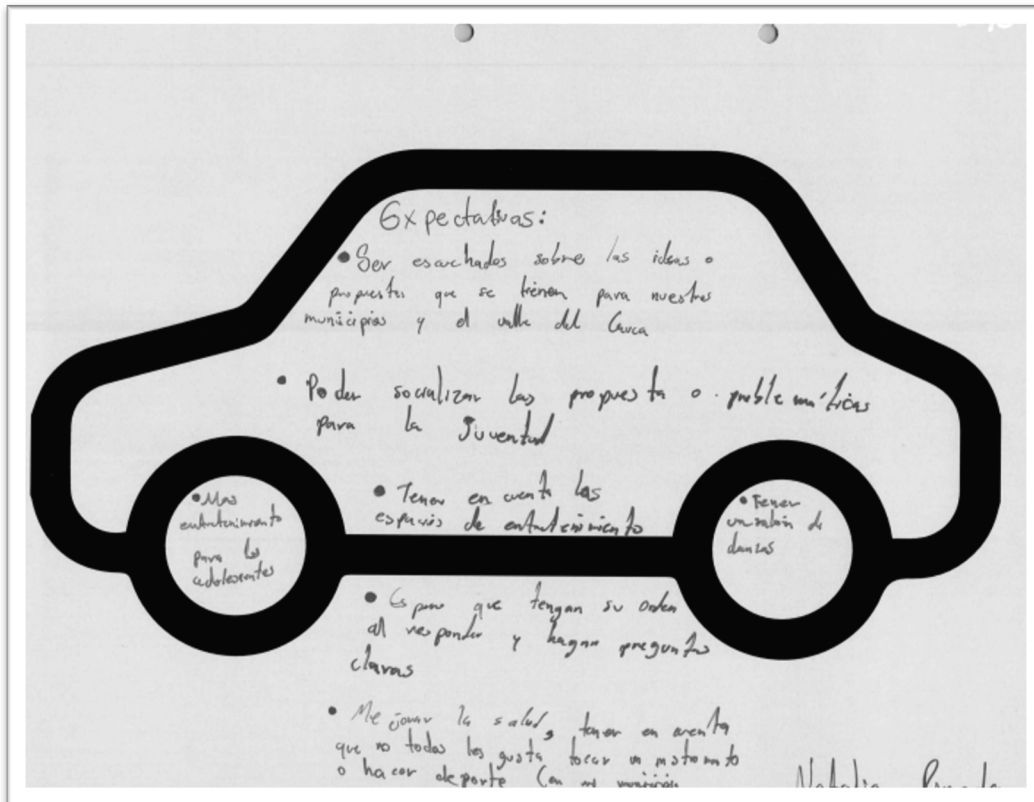 Expectativas:
• Ser escuchados sobre las ideas o
propuestas que se tienen para nuestros
municipios y el valle del Cauca
• Poder socializar las propuesta o problemáticas
para la Juventud
• Tener en cuenta los
espacios de entretenimiento
• Mas
entretenimiento
para los
adolescentes
• Tener
un salón de
danzas
• Espero que tengan su orden
al responder y hagan preguntas
claras
• Mejorar la salud, tener en cuenta
que no todos les gusta tocar un
o hacer deporte
Natalia